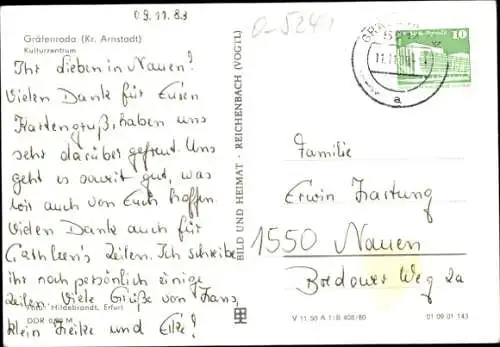 09.11.83
0-5241
Gräfenroda (Kr. Arnstadt)
Kulturzentrum
Ihr Lieben in Nauen!
Vielen Dank für Euren
Kartengruß, haben uns
sehr darüber gefreut. Uns
geht es soweit gut, was
wir auch von Euch hoffen.
Vielen Dank auch für
Cathleen's Zeilen. Ich schreibe
ihr noch persönlich einige
Zeilen. Viele Grüße von Hans,
klein Heike und Elke!
Foto: Hildebrandt, Erfurt
DDR 0,20 M
BILD UND HEIMAT · REICHENBACH (VOGTL)
V 11 50 A 1/B 408/80
01 09 01 143
10
a
Familie
Erwin Hartung
1550 Nauen
Bredower Weg 2a